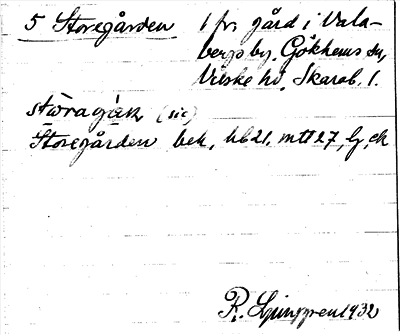 5 Storegården 1 fr. gård i Vala-
bergs by, Gökhems sn,
Vilske hd, Skarab. l.
stωragàn (sic)
Storegården bek, hb21, mtl 27, lj, ek
R. Ljunggren 1932